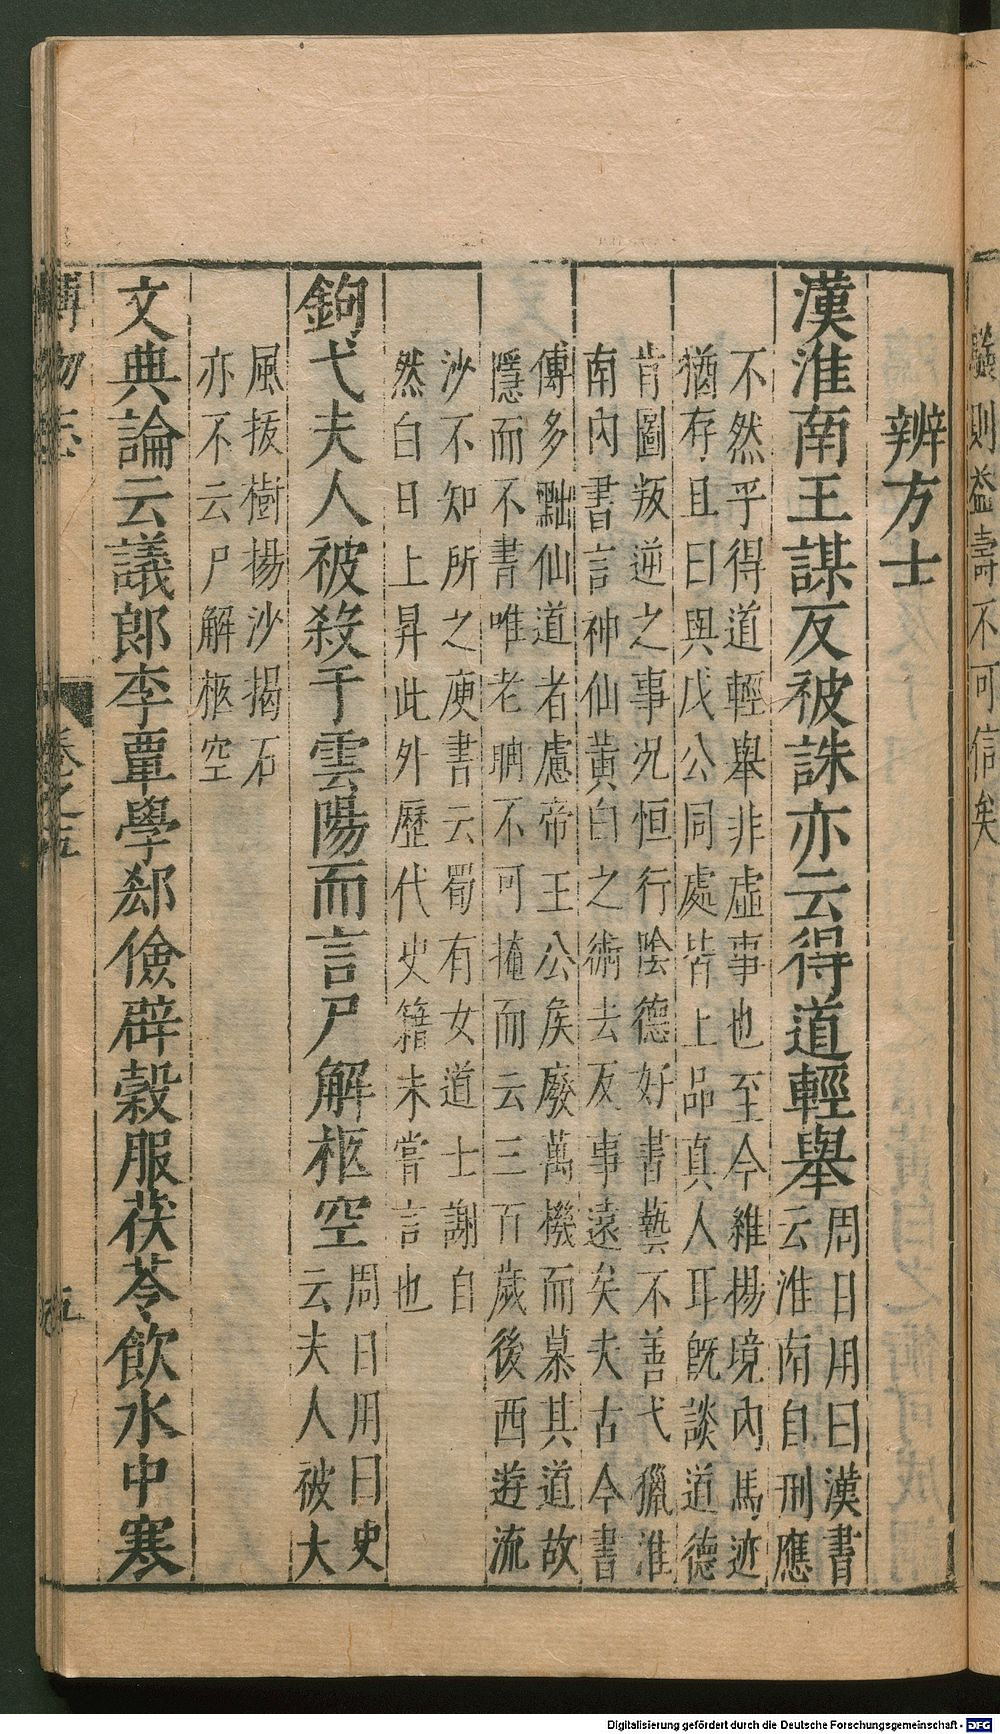 辨方士
漢淮南王謀反被誅亦云得道輕舉周日用曰漢書
云淮南自刑應
不然乎得道輕舉非虛事也至今維楊境內馬迹
猶存且曰與戊公同處皆上品真人耳旣談道德
肯圖叛逆之事況恒行陰德好書藝不善弋獵淮
南內書言神仙黃白之術去反事遠矣夫古今書
傳多黜仙道者慮帝王公矦廢萬機而慕其道故
隱而不書唯老聃不可掩而云三百歲後西遊流
沙不知所之庾書云蜀有女道士謝自
然白日上昇此外歷代史籍未嘗言也
鉤弋夫人被殺于雲陽而言尸解柩空周日用曰史
云夫人被大
風拔樹揚沙揭石
亦不云尸解柩空
文典論云議郎李覃學郄儉辟穀服茯苓飲水中寒
博物志
卷之五
五
則益壽不可信矣
Digitalisierung gefördert durch die Deutsche Forschungsgemeinschaft - DFG